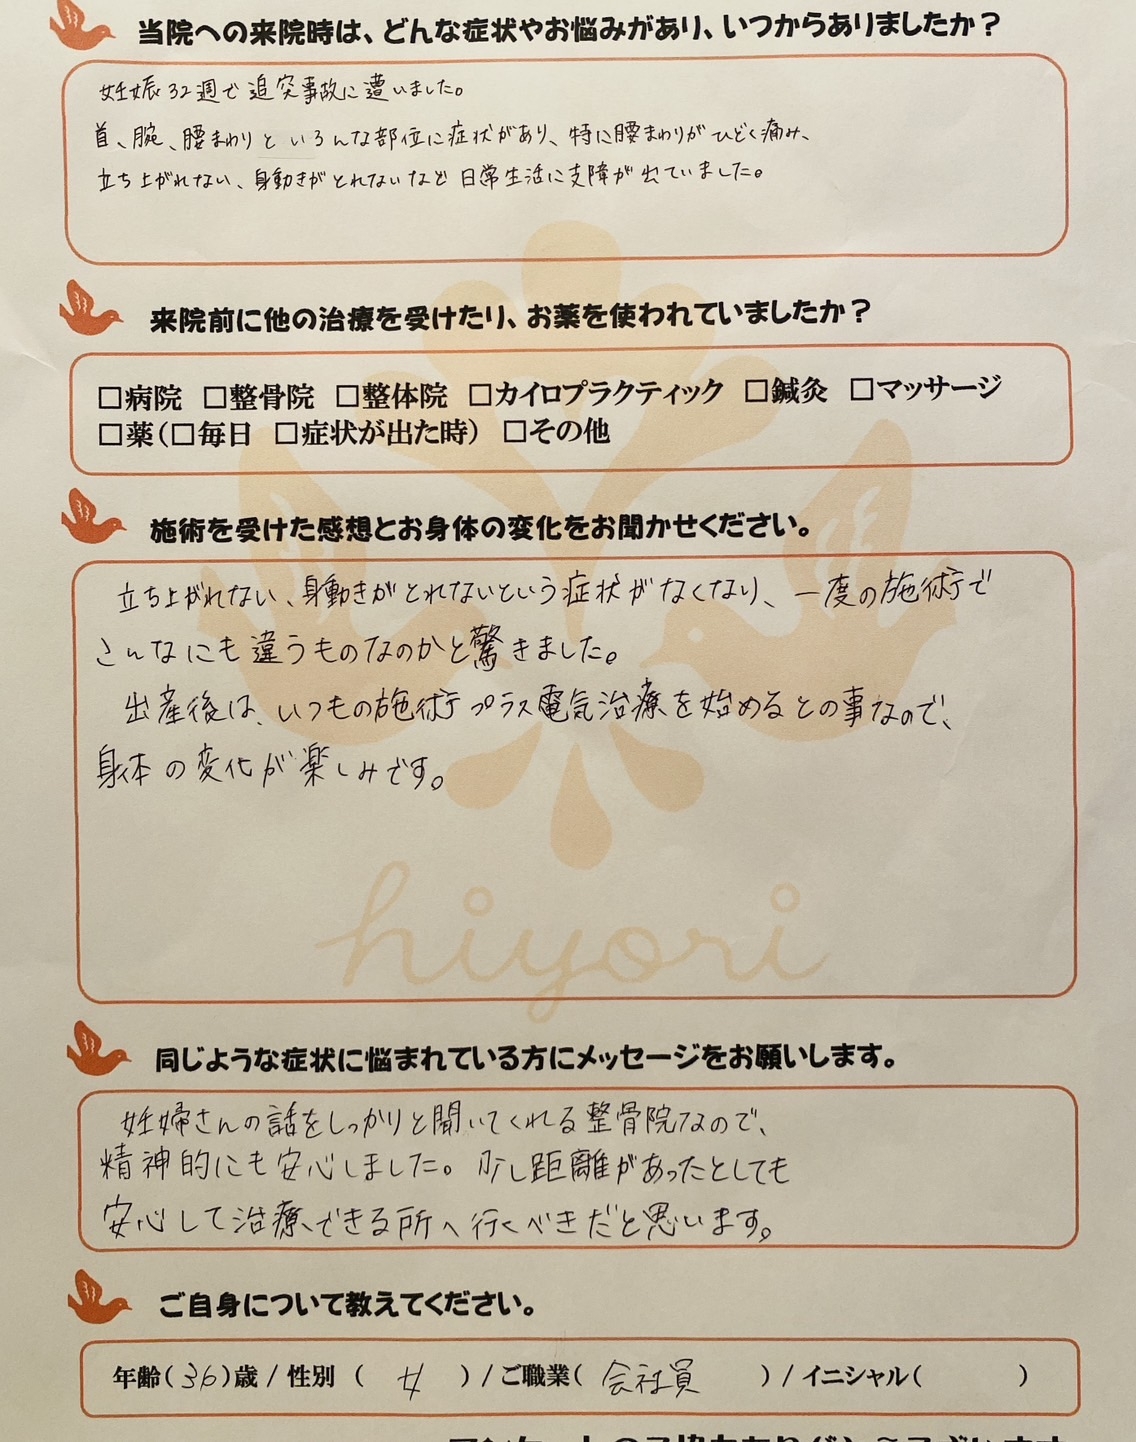 当院への来院時は、どんな症状やお悩みがあり、いつからありましたか？
妊娠32週で追突事故に遭いました。
首、腕、腰まわりといろんな部位に症状があり、特に腰まわりがひどく痛み、
立ち上がれない、身動きがとれないなど日常生活に支障が出ていました。
来院前に他の治療を受けたり、お薬を使われていましたか？
□病院 □整骨院 □整体院 □カイロプラクティック □鍼灸 □マッサージ
□薬（□毎日 □症状が出た時） □その他
施術を受けた感想とお身体の変化をお聞かせください。
立ち上がれない、身動きがとれないという症状がなくなり、一度の施術で
こんなにも違うものなのかと驚きました。
出産後は、いつもの施術プラス電気治療を始めるとの事なので、
身体の変化が楽しみです。
hiyori
同じような症状に悩まれている方にメッセージをお願いします。
妊婦さんの話をしっかりと聞いてくれる整骨院なので、
精神的にも安心しました。少し距離があったとしても
安心して治療できる所へ行くべきだと思います。
ご自身について教えてください。
年齢（36）歳 / 性別（ 女 ）/ ご職業（ 会社員 ）/ イニシャル（ ）